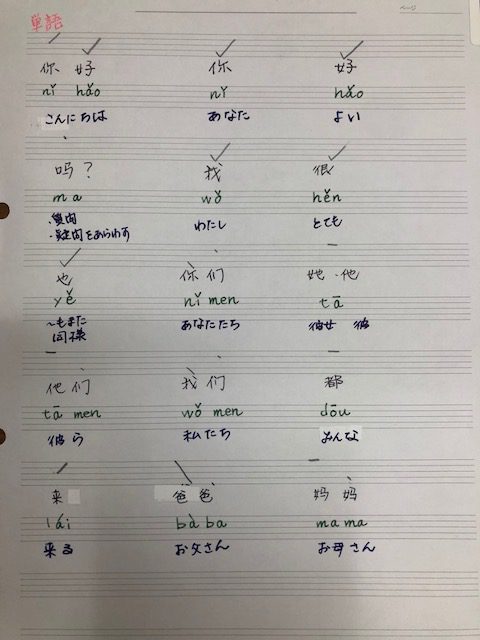 単語
你好 你 好
nǐ hǎo nǐ hǎo
こんにちは あなた よい
吗? 我 很
ma wǒ hěn
・質問 わたし とても
・疑問をあらわす
也 你们 她・他
yě nǐ men tā
~もまた あなたたち 彼女 彼
同様
他们 我们 都
tā men wǒ men dōu
彼ら 私たち みんな
来 爸爸 妈妈
lái bà ba ma ma
来る お父さん お母さん